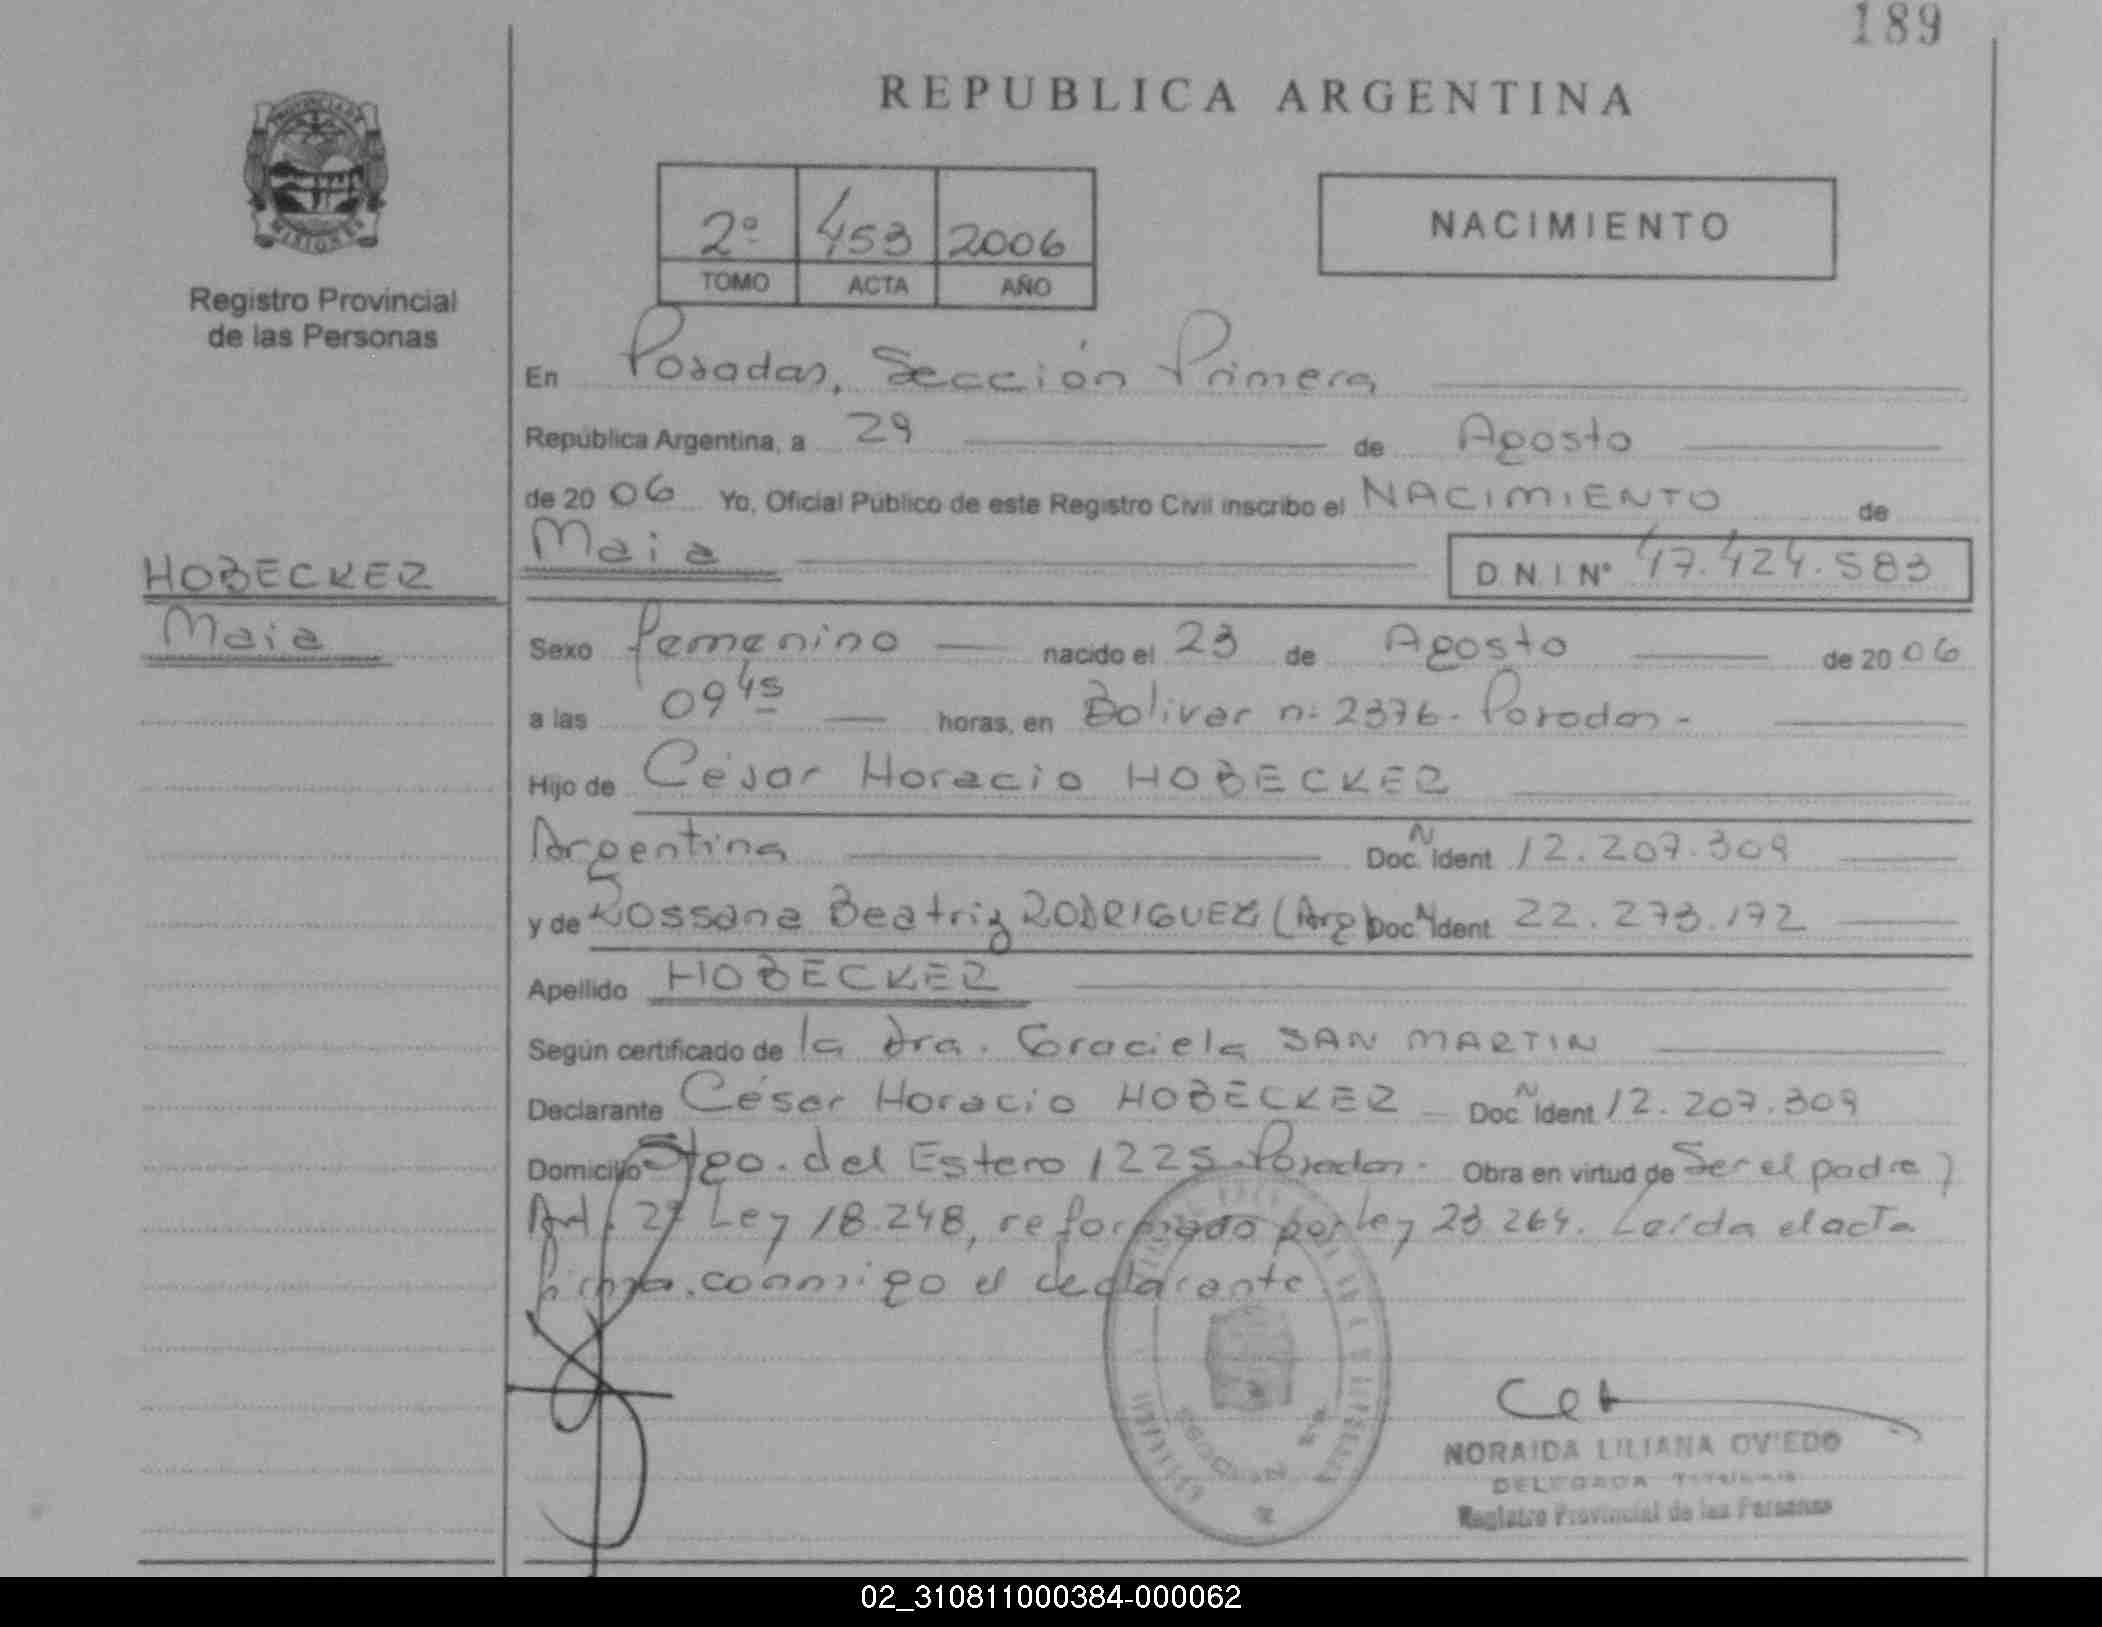 189
REPUBLICA ARGENTINA
2º 453 2006
TOMO ACTA AÑO
NACIMIENTO
PROVINCIA DE
MISIONES
Registro Provincial
de las Personas
En Posadas, Sección Primera
República Argentina, a 29 de Agosto
de 20 06 Yo, Oficial Público de este Registro Civil inscribo el NACIMIENTO de
Maia D N I Nº 47.424.583
HOBECKER
Maia
Sexo femenino nacido el 23 de Agosto de 20 06
a las 09 45 horas, en Bolivar nº 2376 - Posadas -
Hijo de César Horacio HOBECKER
Argentina Doc. N Ident 12.207.309
y de Rossana Beatriz RODRIGUEZ (Arg) Doc. N Ident 22.273.172
Apellido HOBECKER
Según certificado de la Dra. Graciela SAN MARTIN
Declarante César Horacio HOBECKER Doc. N Ident 12.207.309
Domicilio Stgo. del Estero 1225 - Posadas - Obra en virtud de Ser el padre,
Art. 2º Ley 18.248, reformado por Ley 23.264. Leída el acta
firma conmigo el declarante
NORAIDA LILIANA OVIEDO
DELEGADA TITULAR
Registro Provincial de las Personas
02_310811000384-000062